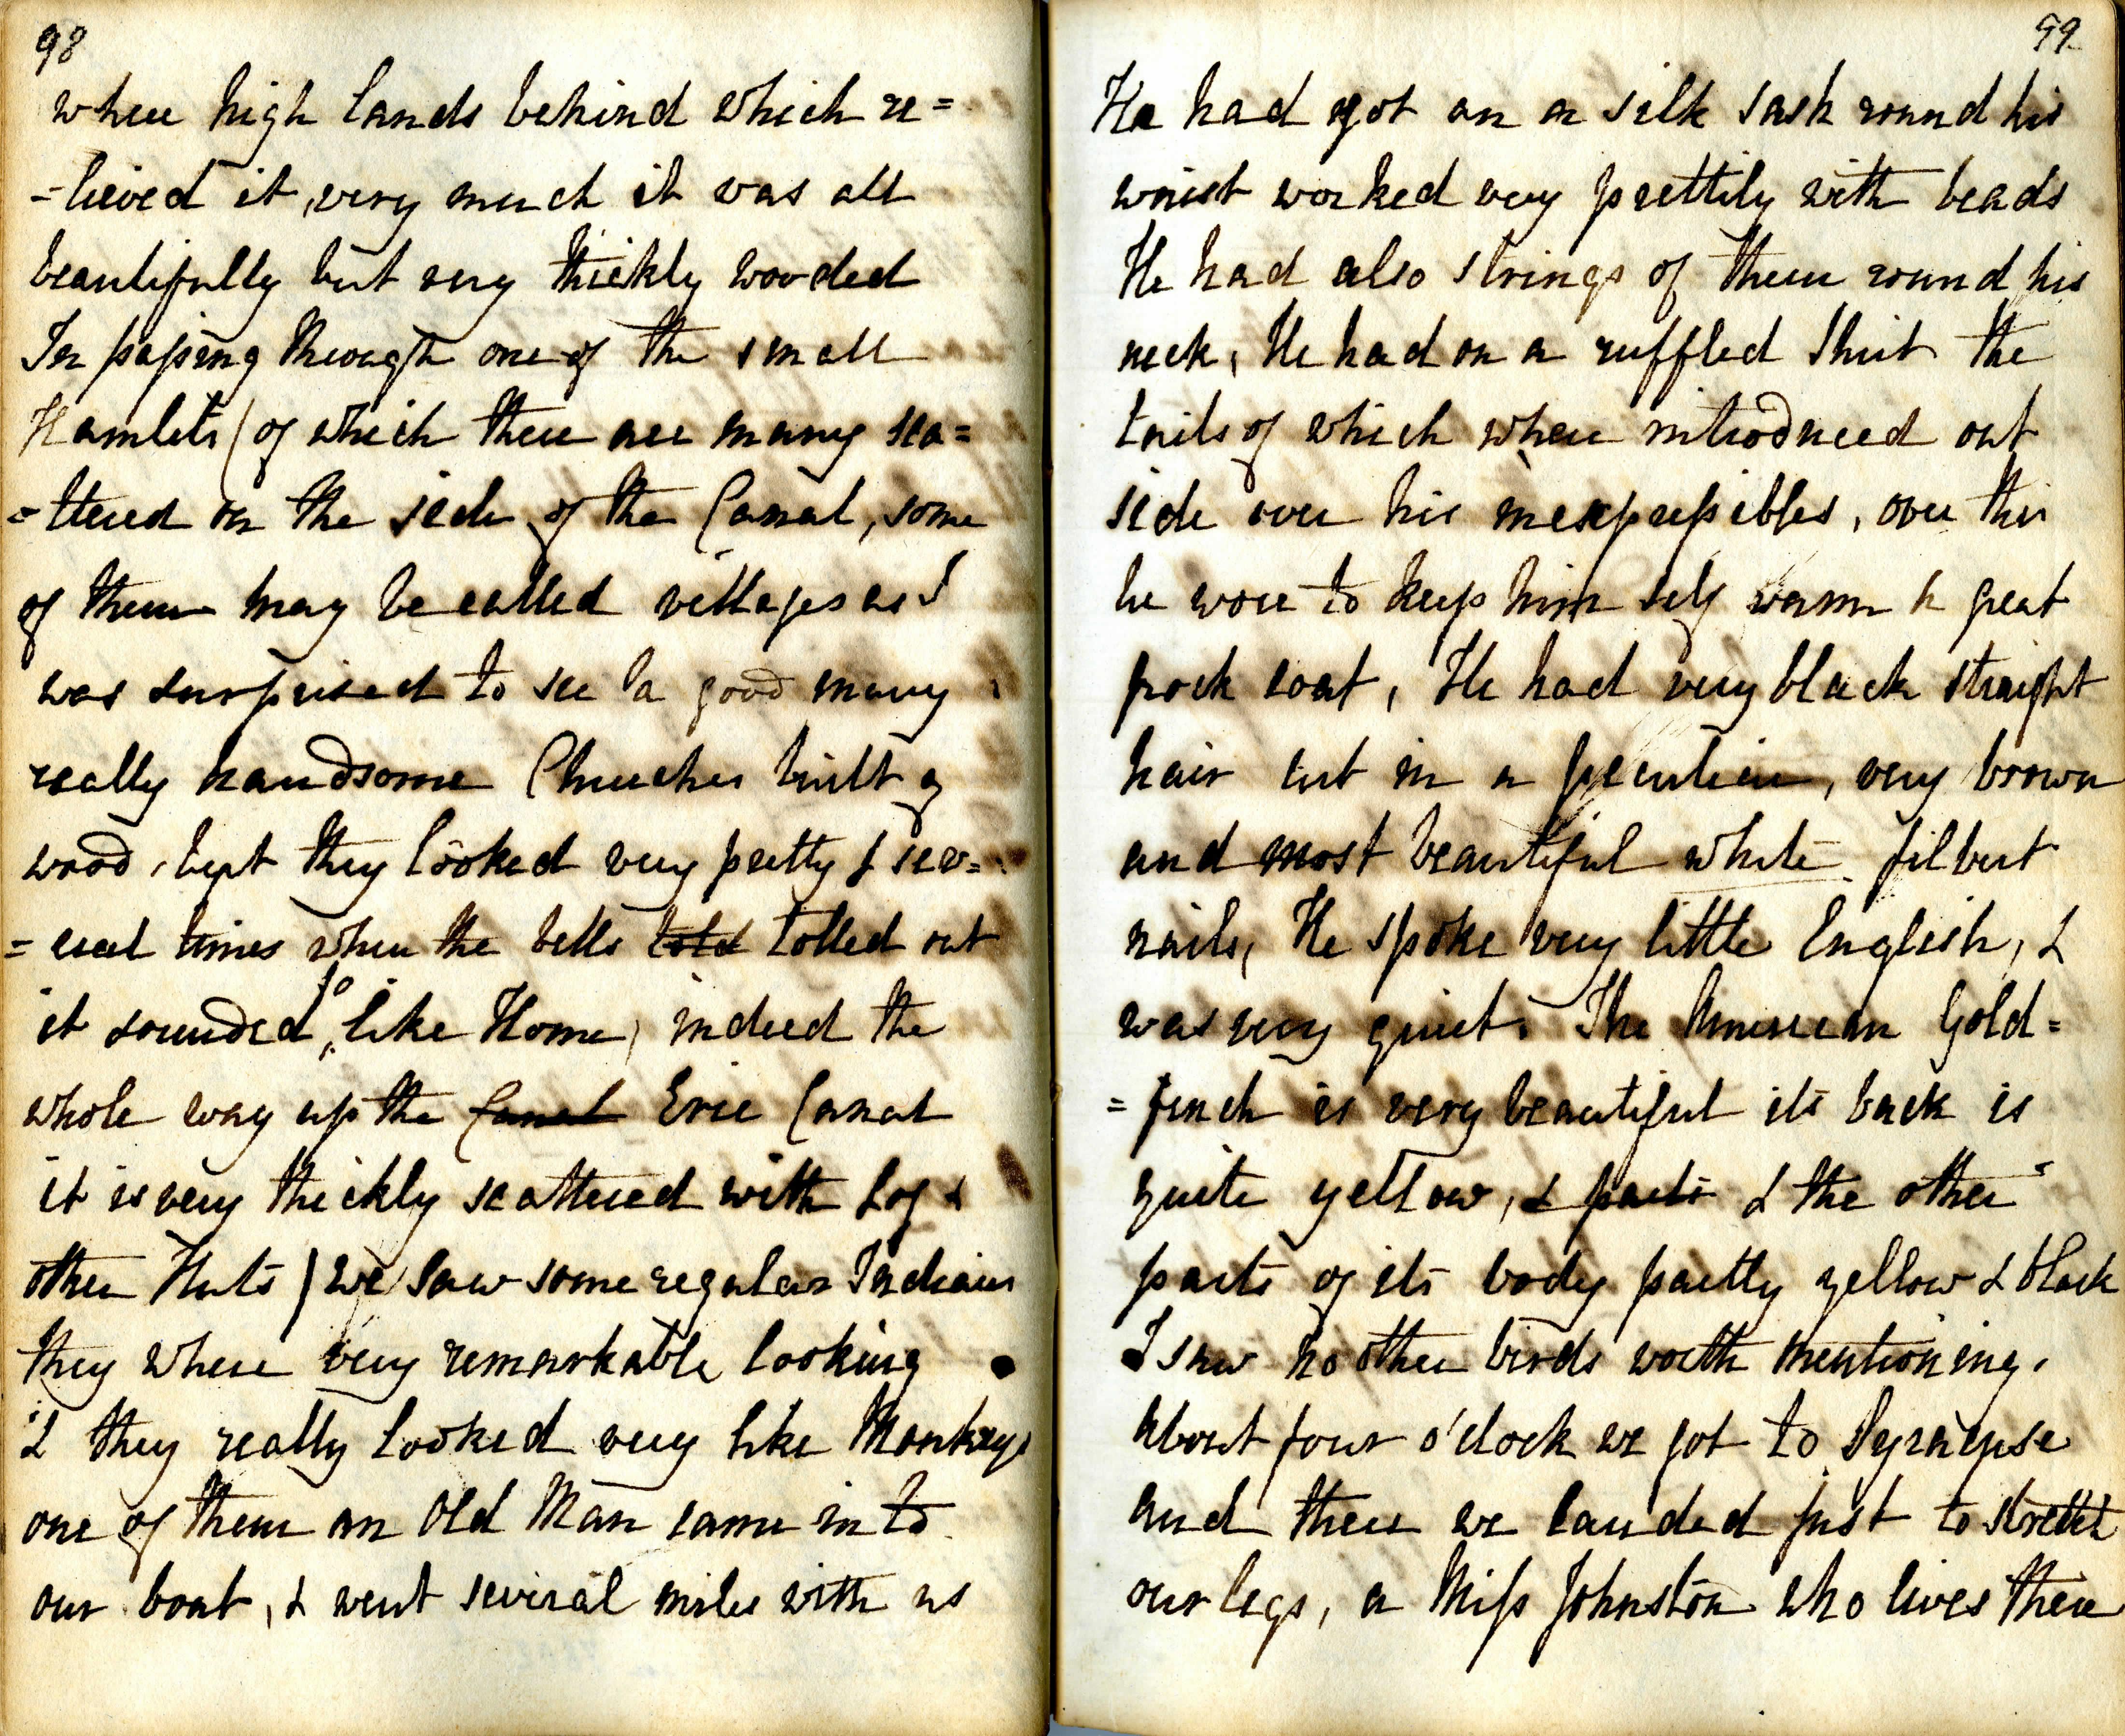 98
where high lands behind which re=
=lieved it, very much it was all
beautifully but very thickly wooded
In passing through one of the small
Hamlets (of which there are many sca=
=ttered on the side of the Canal, some
of them may be called villages as I
was surprised to see a good many
really handsome Churches built of
wood, but they looked very pretty & sev=
=eral times when the bells told tolled out
it sounded so like Home, indeed the
whole way up the Canal Erie Canal
it is very thickly scattered with Log &
other Huts) we saw some regular Indians
they where very remarkable looking
& they really looked very like Monkeys
one of them an Old Man came in to
our boat, & went several miles with us
99
He had got on a silk sash round his
waist worked very prettily with beads
He had also strings of them round his
neck, He had on a ruffled Shirt the
tails of which where introduced out
side over his inexpressibles, over this
he wore to keep him self warm a great
frock coat, He had very black straight
hair cut in a peculiar, very brown
and most beautiful white filbert
nails, He spoke very little English, &
was very quiet. The American Gold=
=finch is very beautiful its back is
quite yellow, & parts & the other
parts of its body partly yellow & black
I saw no other birds worth mentioning.
About four o'clock we got to Syracuse
and there we landed just to stretch
our legs, a Miss Johnston who lives there